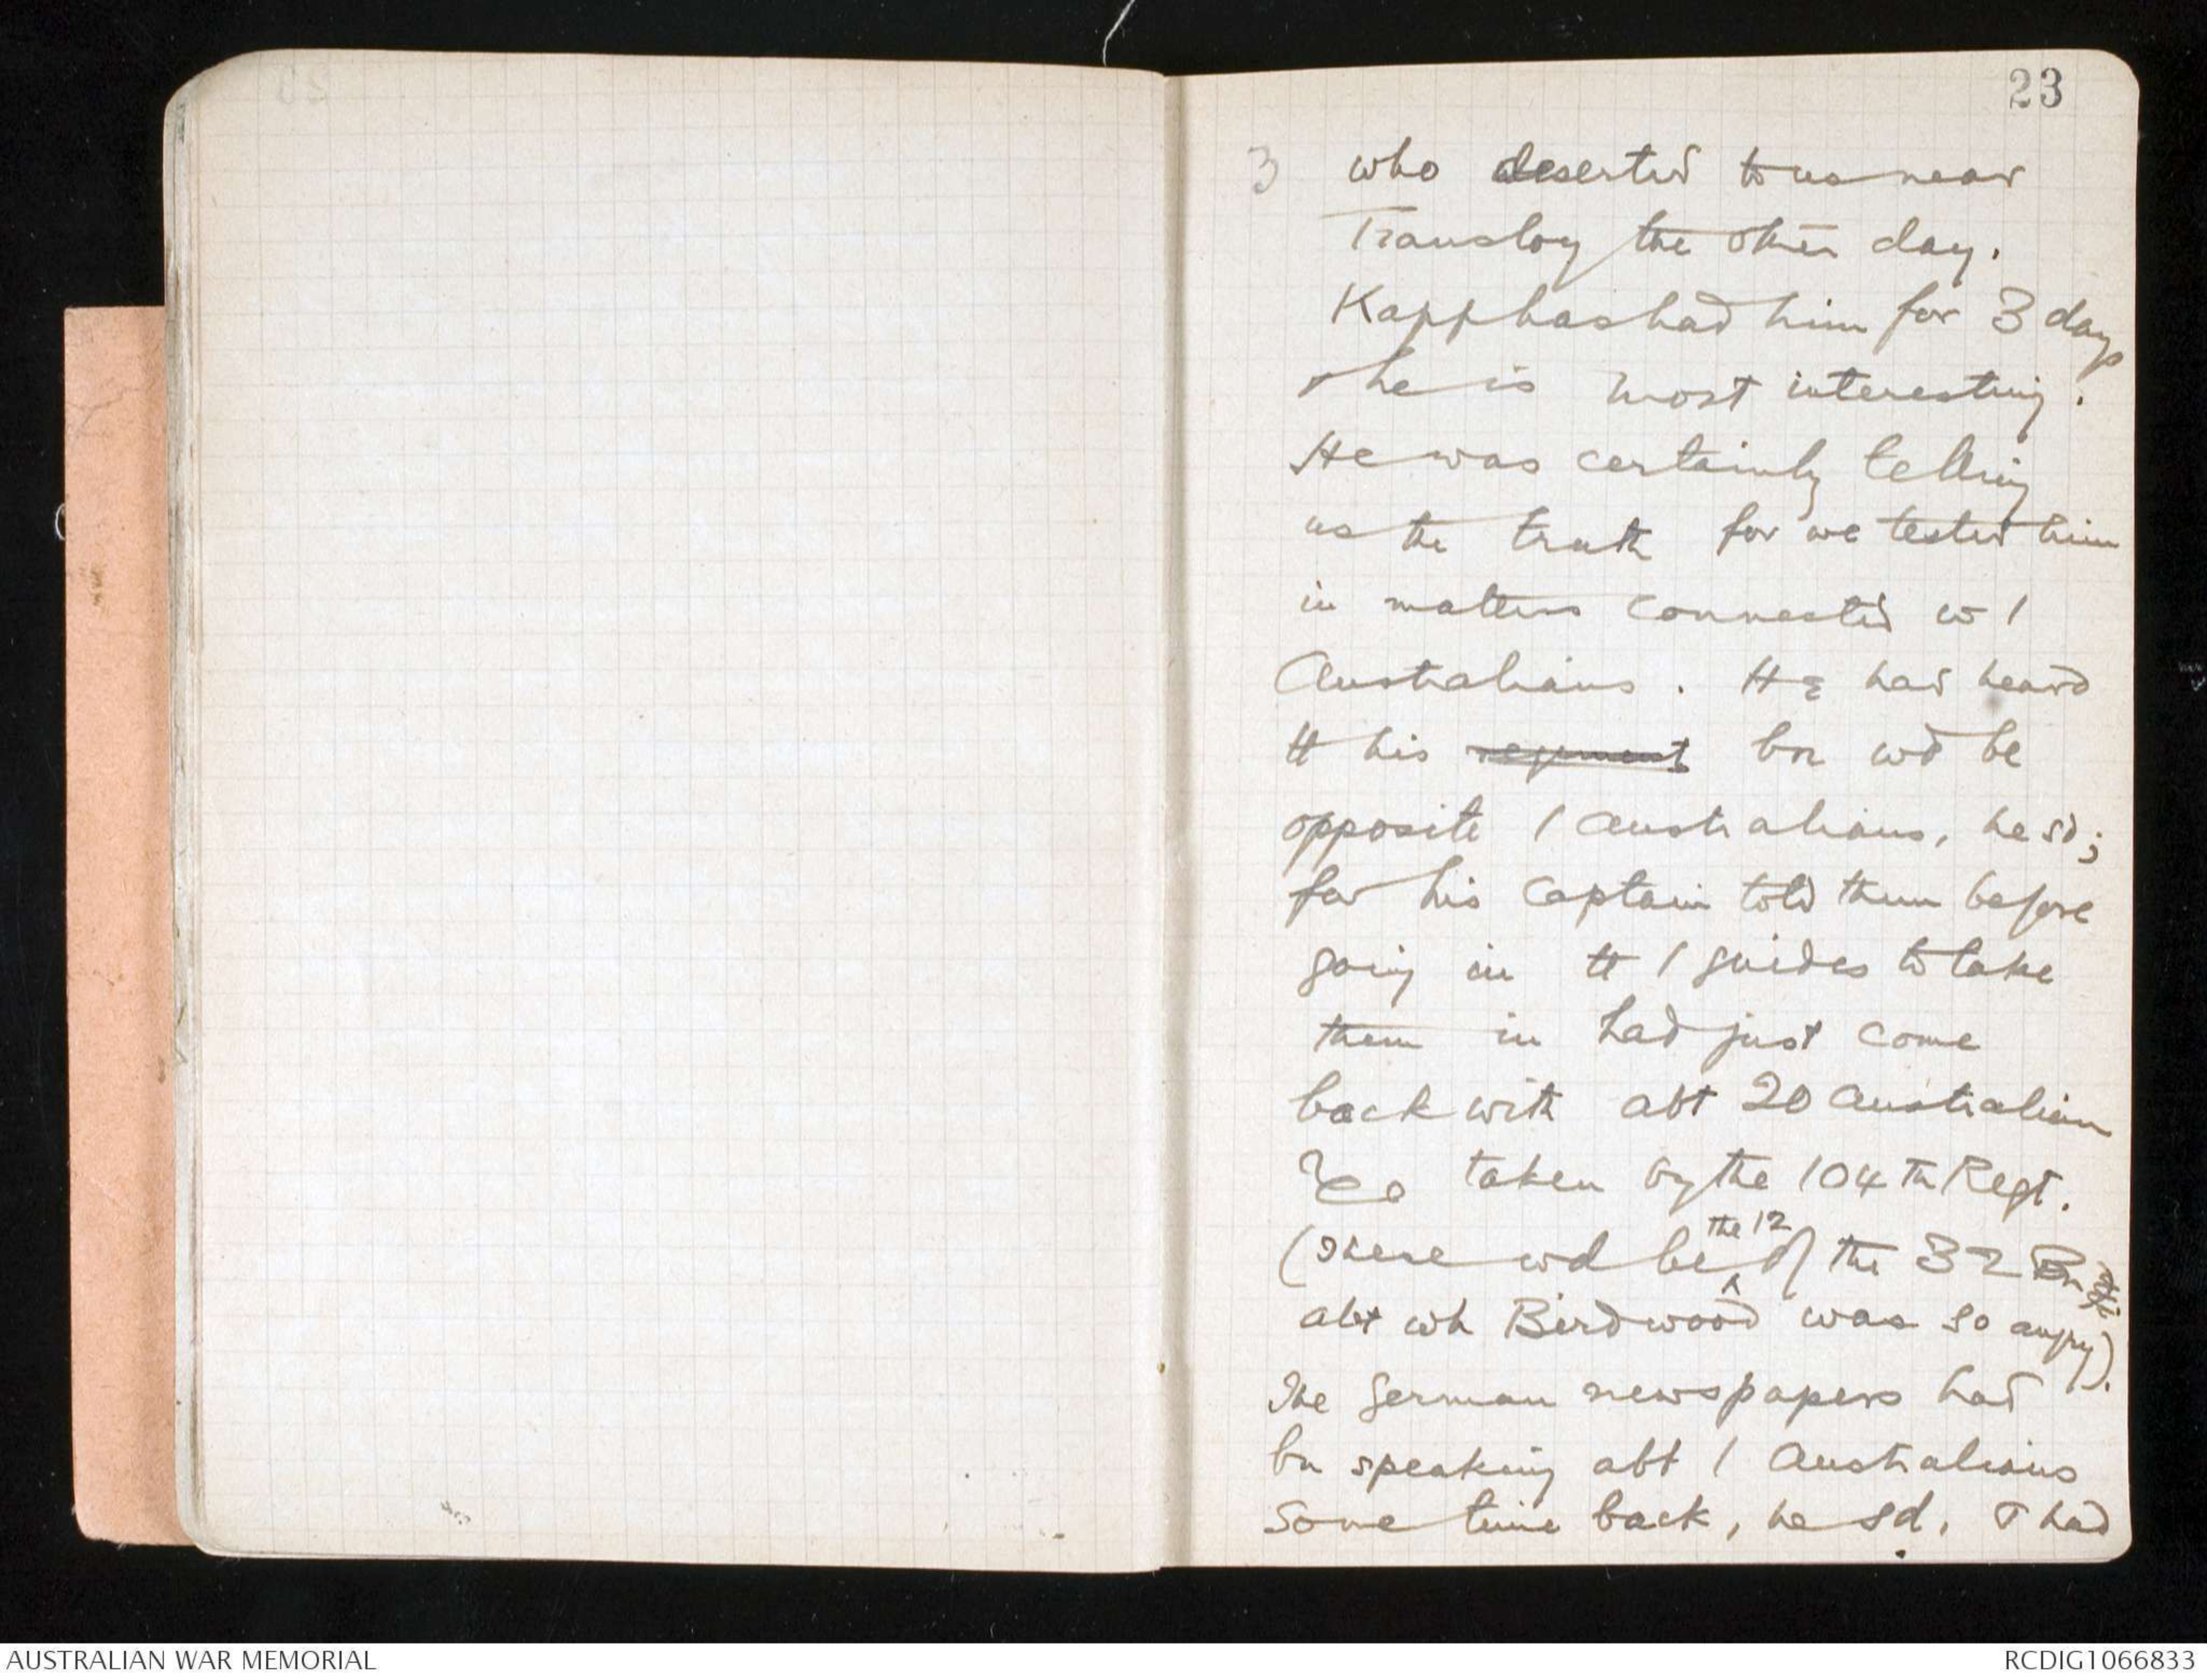 23
3 who deserted to us near
Transloy the other day.
Kapp has had him for 3 days
& he is most interesting.
He was certainly telling
us the truth for we tested him
in matters connected w /
Australians. He had heard
tt his regiment bn wd be
opposite / Australians, he sd;
for his Captain told them before
going in tt / guides to take
them in had just come
back with abt 20 Australian
taken by the 104th Regt.
(These wd be the 12 of the 32 Bn
abt wh Birdwood was so angry).
The German newspapers had
bn speaking abt / Australians
some time back, he sd, & had
AUSTRALIAN WAR MEMORIAL
RCDIG1066833